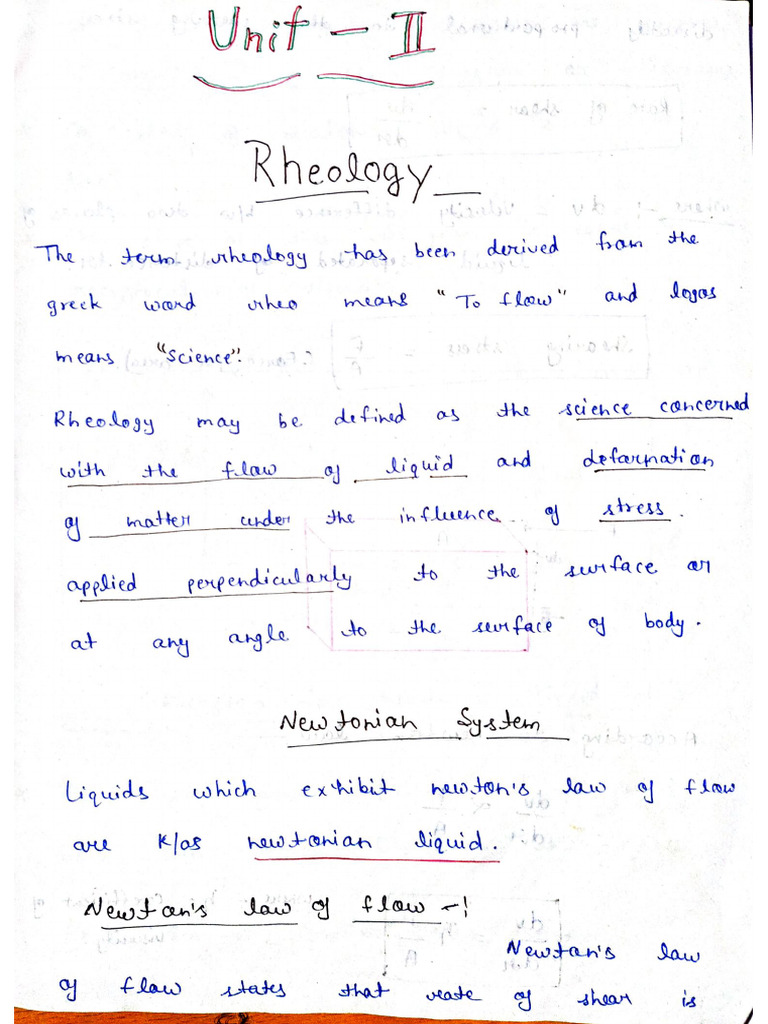 Unit - II
Rheology
The term rheology has been derived from the
greek word rheo means "To flow" and logos
means "Science".
Rheology may be defined as the science concerned
with the flow of liquid and defarnation
of matter under the influence of stress.
applied perpendicularly to the surface or
at any angle to the surface of body.
Newtonian System
Liquids which exhibit newton's law of flow
are K/as newtonian liquid.
Newtan's law of flow -!
Newtan's law
of flow states that reate of shear is